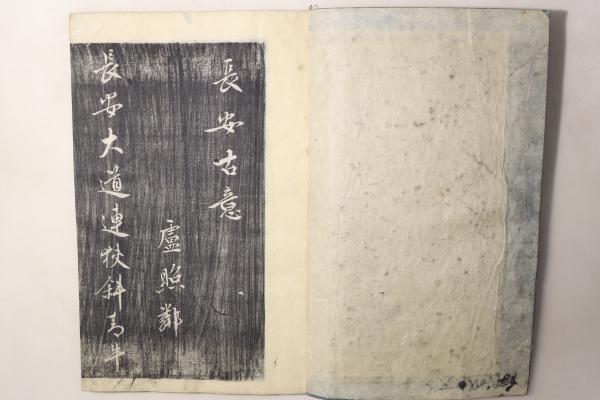 長安古意
盧照鄰
長安大道連狹斜青牛